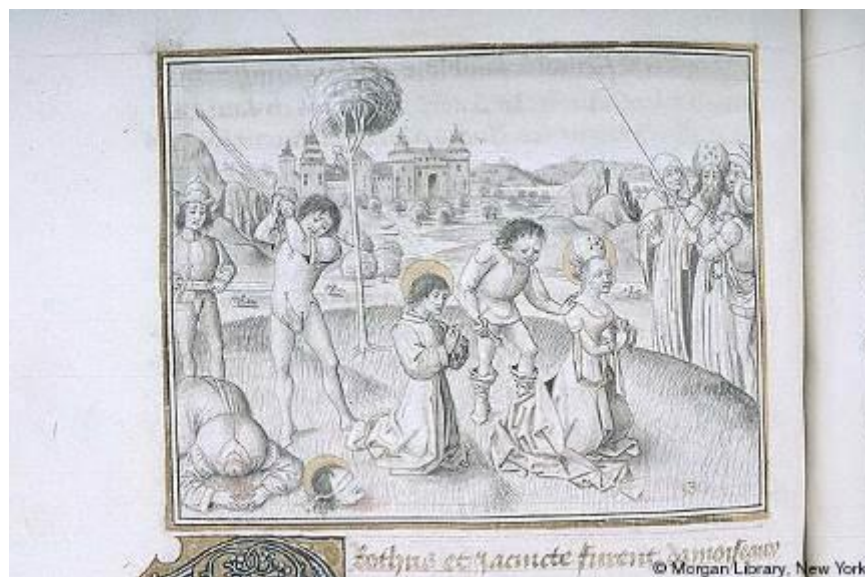 rothus et Jacincte furent damoiseaux
© Morgan Library, New York